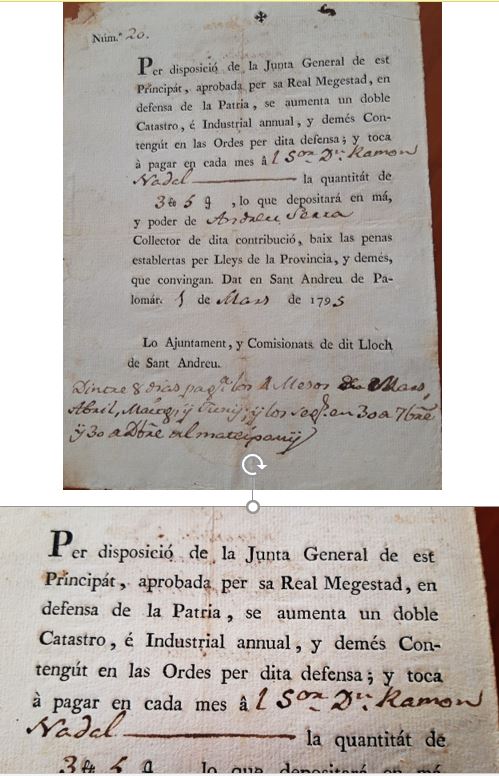 Núm.º 20.
Per disposició de la Junta General de est
Principát, aprobada per sa Real Megestad, en
defensa de la Patria, se aumenta un doble
Catastro, é Industrial annual, y demés Con-
tengút en las Ordes per dita defensa; y toca
à pagar en cada mes â l Sor. Dn. Ramon
Nadal la quantitát de
3 5 , lo que depositará en má,
y poder de Andreu Serra
Collector de dita contribució, baix las penas
establertas per Lleys de la Provincia, y demés,
que convingan. Dat en Sant Andreu de Pa-
lomár. 1 de Mars de 1795
Lo Ajuntament, y Comisionats de dit Lloch
de Sant Andreu.
Dintre 8 dias los 4 Mesos Mars,
Abril, y los en 30 a 7bre
ÿ 30 a Dbre
Per disposició de la Junta General de est
Principát, aprobada per sa Real Megestad, en
defensa de la Patria, se aumenta un doble
Catastro, é Industrial annual, y demés Con-
tengút en las Ordes per dita defensa; y toca
à pagar en cada mes â l Sor. Dn. Ramon
Nadal la quantitát de
3 5 lo que depositará en má